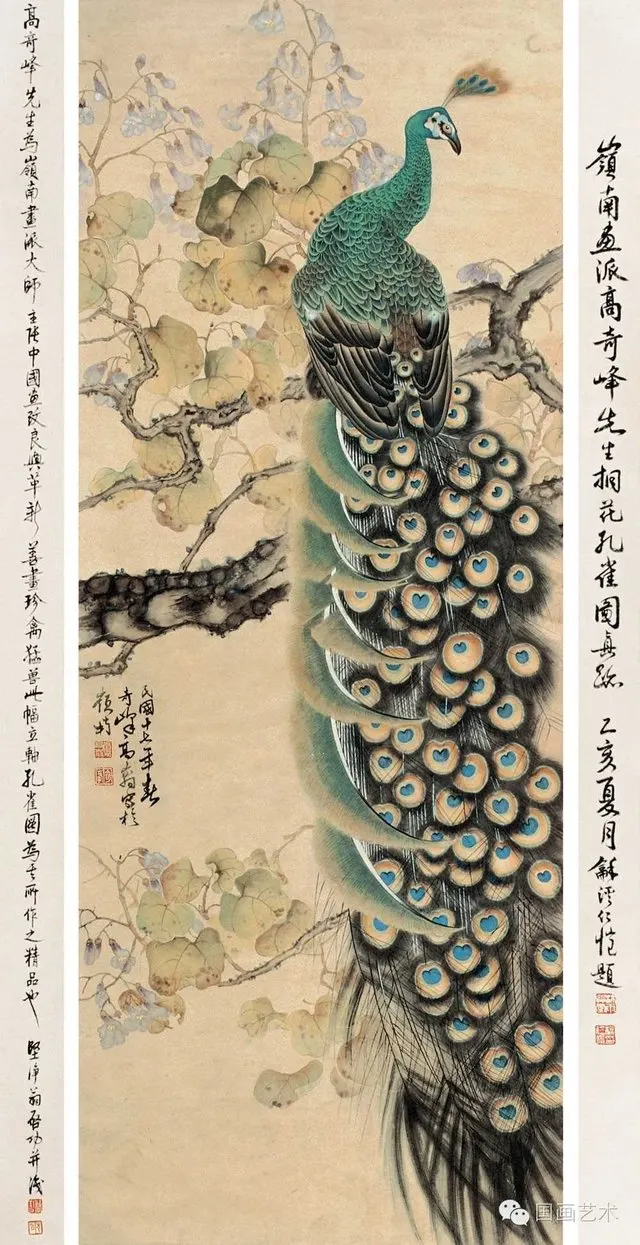 嶺南畫派高奇峰先生桐花孔雀圖真跡 乙亥夏月龢溪仁愷題
民國十七年春
奇峰高嵡寫於
高奇峰先生為嶺南畫派大師 主張中國畫改良與革新 善畫珍禽猛獸 此幅立軸孔雀圖為其所作之精品也 堅淨翁啟功并識
国画艺术